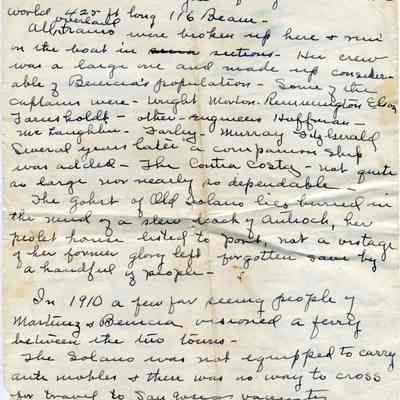 world 425 ft long 116 Beam -
overland
All trains were broken up here & run
on the boat in sections - Her crew
was a large one and made up consider-
able of Benicia's population - Some of the
captains were - Wright Morton - Remmington
Farnsholdt - other - engineers Huffman -
McLaughlin - Farley - Murray Fitzgerald
Several years later a companion ship
was added - The Contra Costa - not quite
as large nor nearly so dependable -
The gohst of Old Solano lies burried in
the mud of a slew back of Antioch, her
pielot house listed to port, not a vistage
of her former glory left - forgotten save by
a handful of people -
In 1910 a few far seeing people of
Martinez & Benicia visioned a ferry
between the two towns -
The Solano was not equipped to carry
auto mobles & there was no way to cross
for travel to San